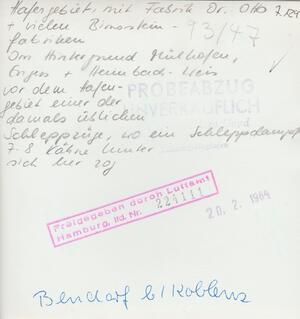 Hafengebiet, mit Fabrik Dr. Otto
+ vielen Bimsstein-
fabriken
93/47
Im Hintergrund Mülhofen,
Engers + Heimbach-Weis
vor dem Hafen-
gebiet einer der
damals üblichen
Schleppzüge, wo ein Schleppdampfer
7-8 Kähne hinter
sich her zog
PROBEABZUG
UNVERKÄUFLICH
Freigegeben durch Luftamt
Hamburg, lfd. Nr.
20. 2. 1984
Bendorf b/Koblenz